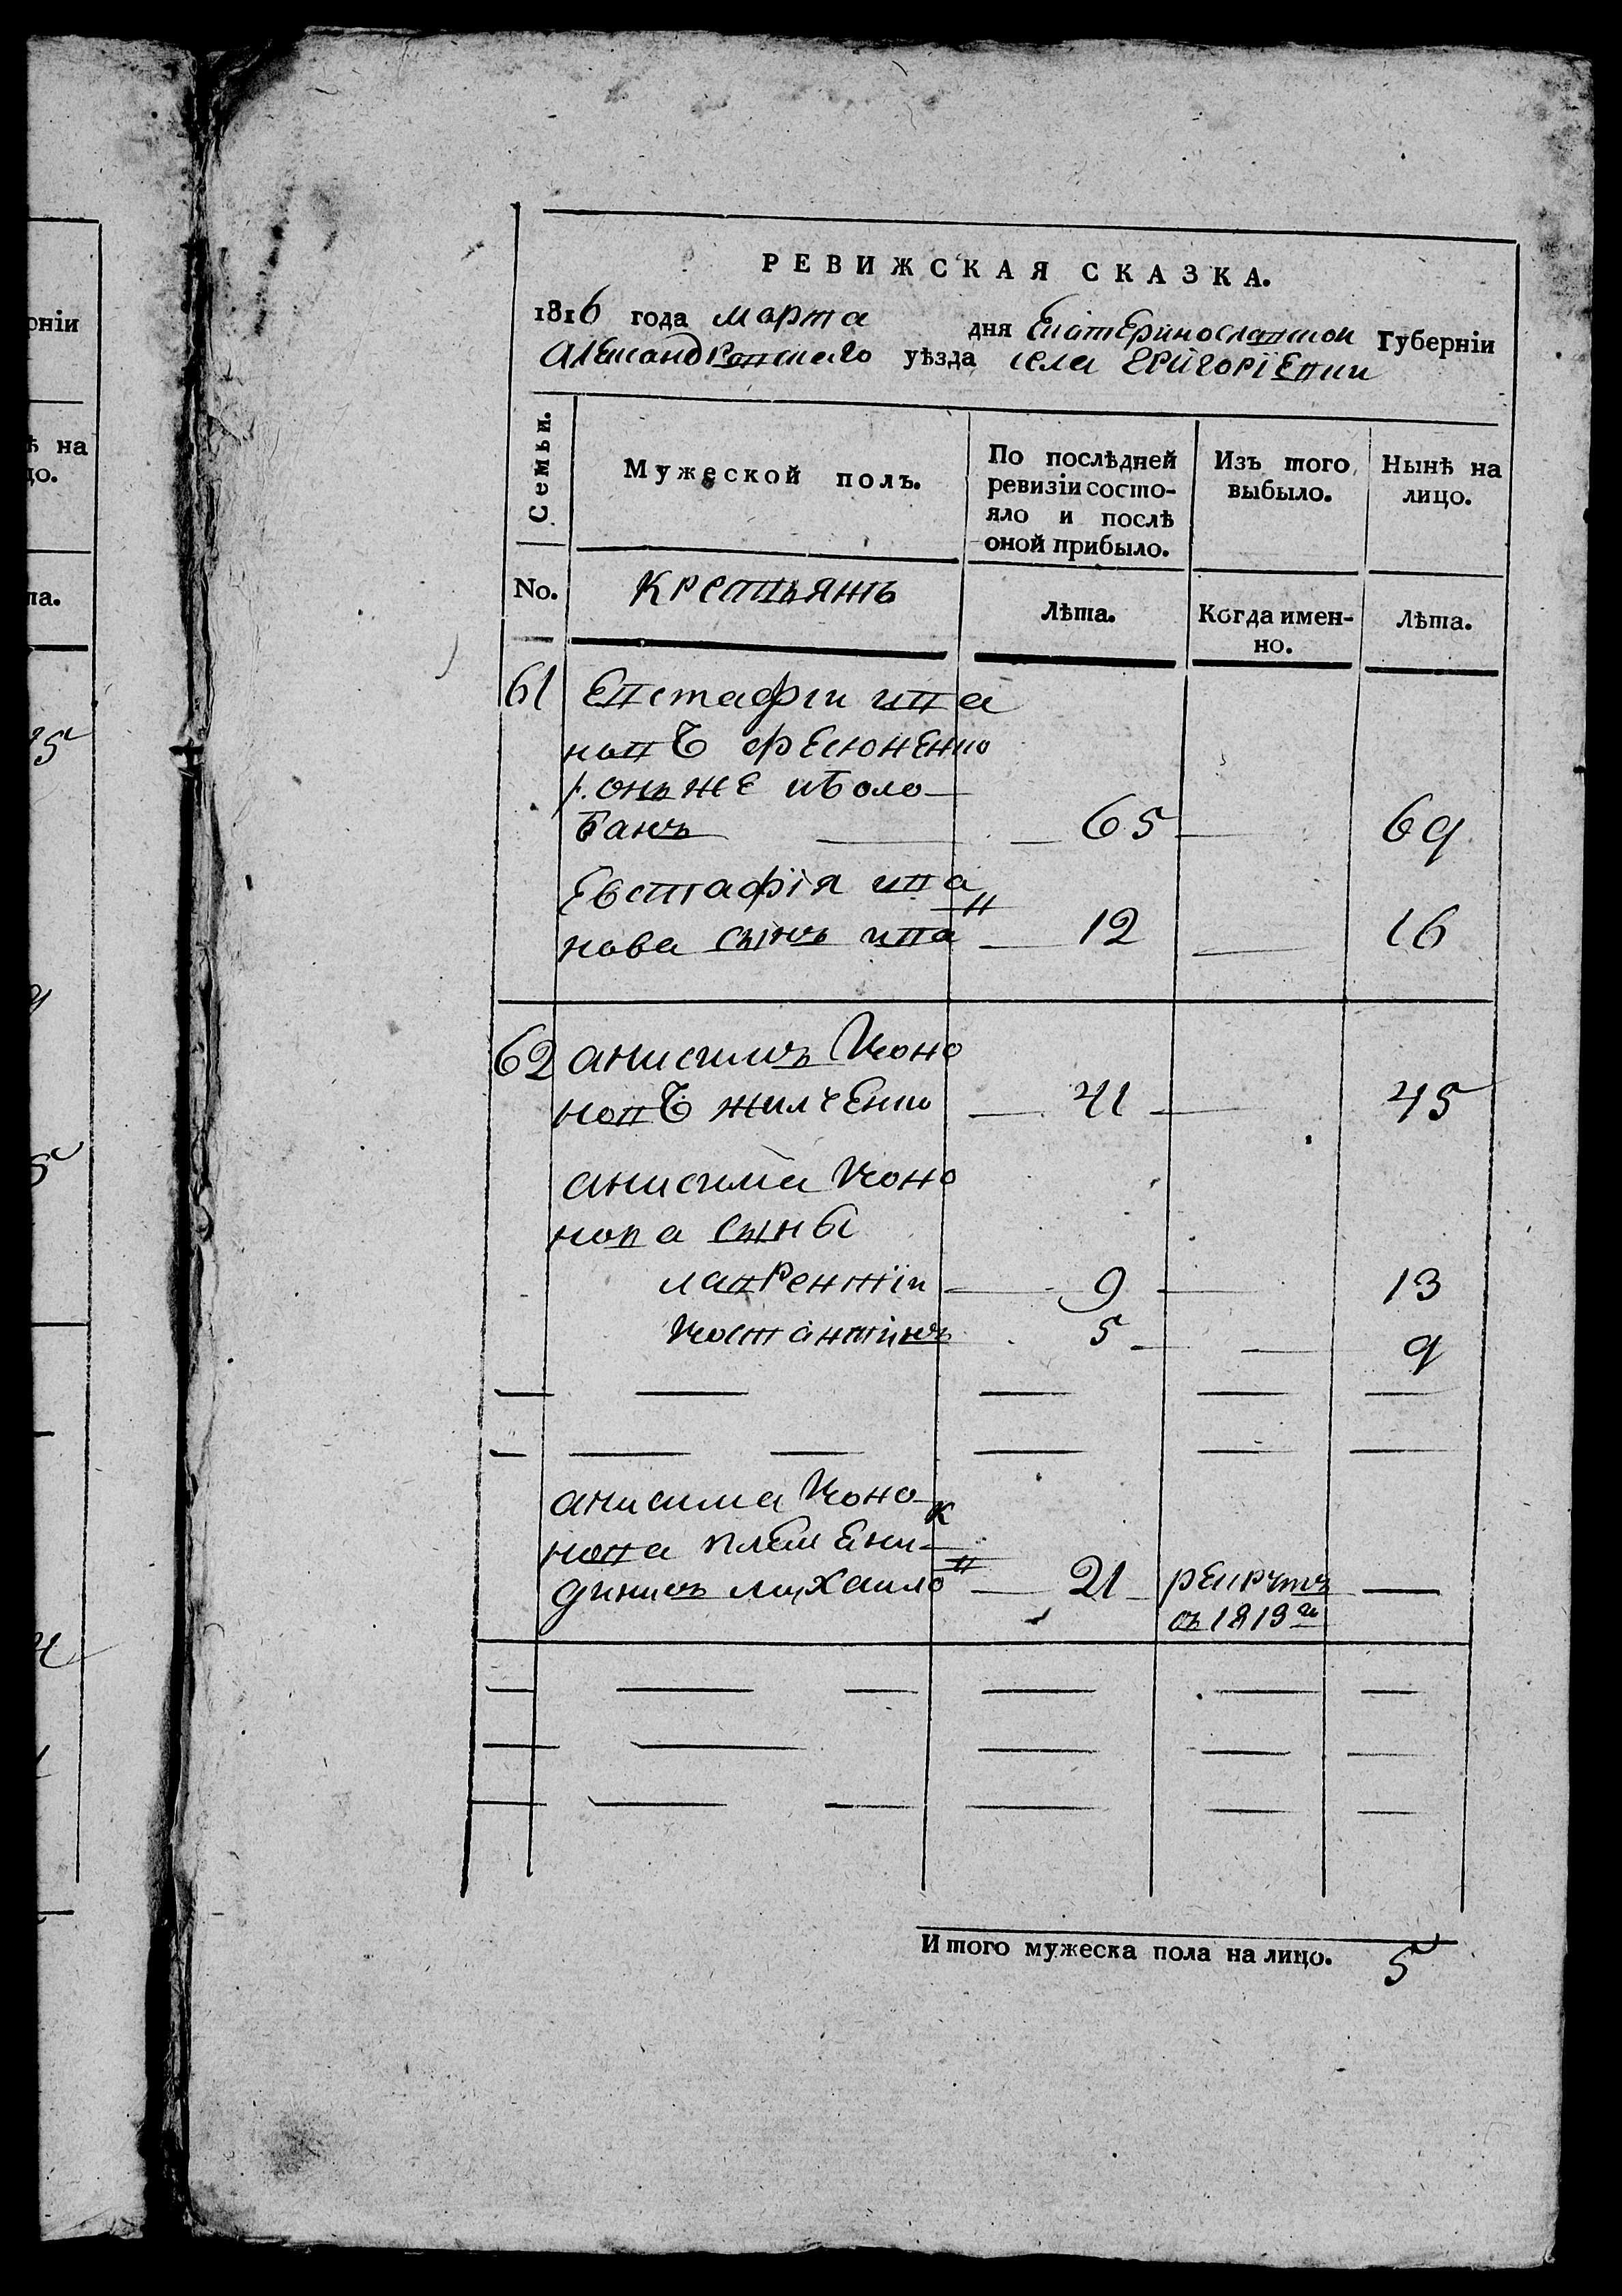 рніи
ѣ на
цо.
та.
РЕВИЖСКАЯ СКАЗКА.
1816 года марта дня Екатеринославской Губерніи
Александровскаго уѣзда села Григоріевки
Семьи.
Мужеской полъ.
По послѣдней
ревизіи состо-
яло и послѣ
оной прибыло.
Изъ того
выбыло.
Нынѣ на
лицо.
No.
Крестьянъ
Лѣта.
Когда имен-
но.
Лѣта.
61 Евстафій ива
новъ фесюненко
онъ же и боло
банъ 65 69
Евстафія ива
нова сынъ иванъ 12 16
62 анисимъ Коно
новъ жилченко 41 45
анисима Коно
нова сыны
лаврентій 9 13
Костантинъ 5 9
анисима Коно
нова племени
динникъ михаило 21 рекрутъ
въ 1813 го
Итого мужеска пола на лицо. 5